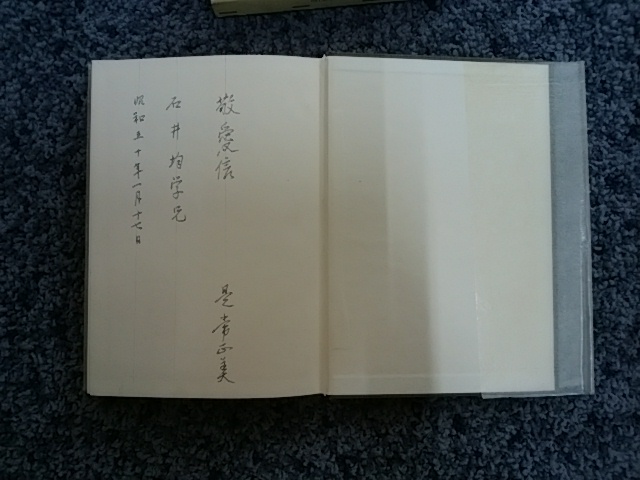 敬愛信
是常正美
石井均学兄
昭和五十年一月十七日